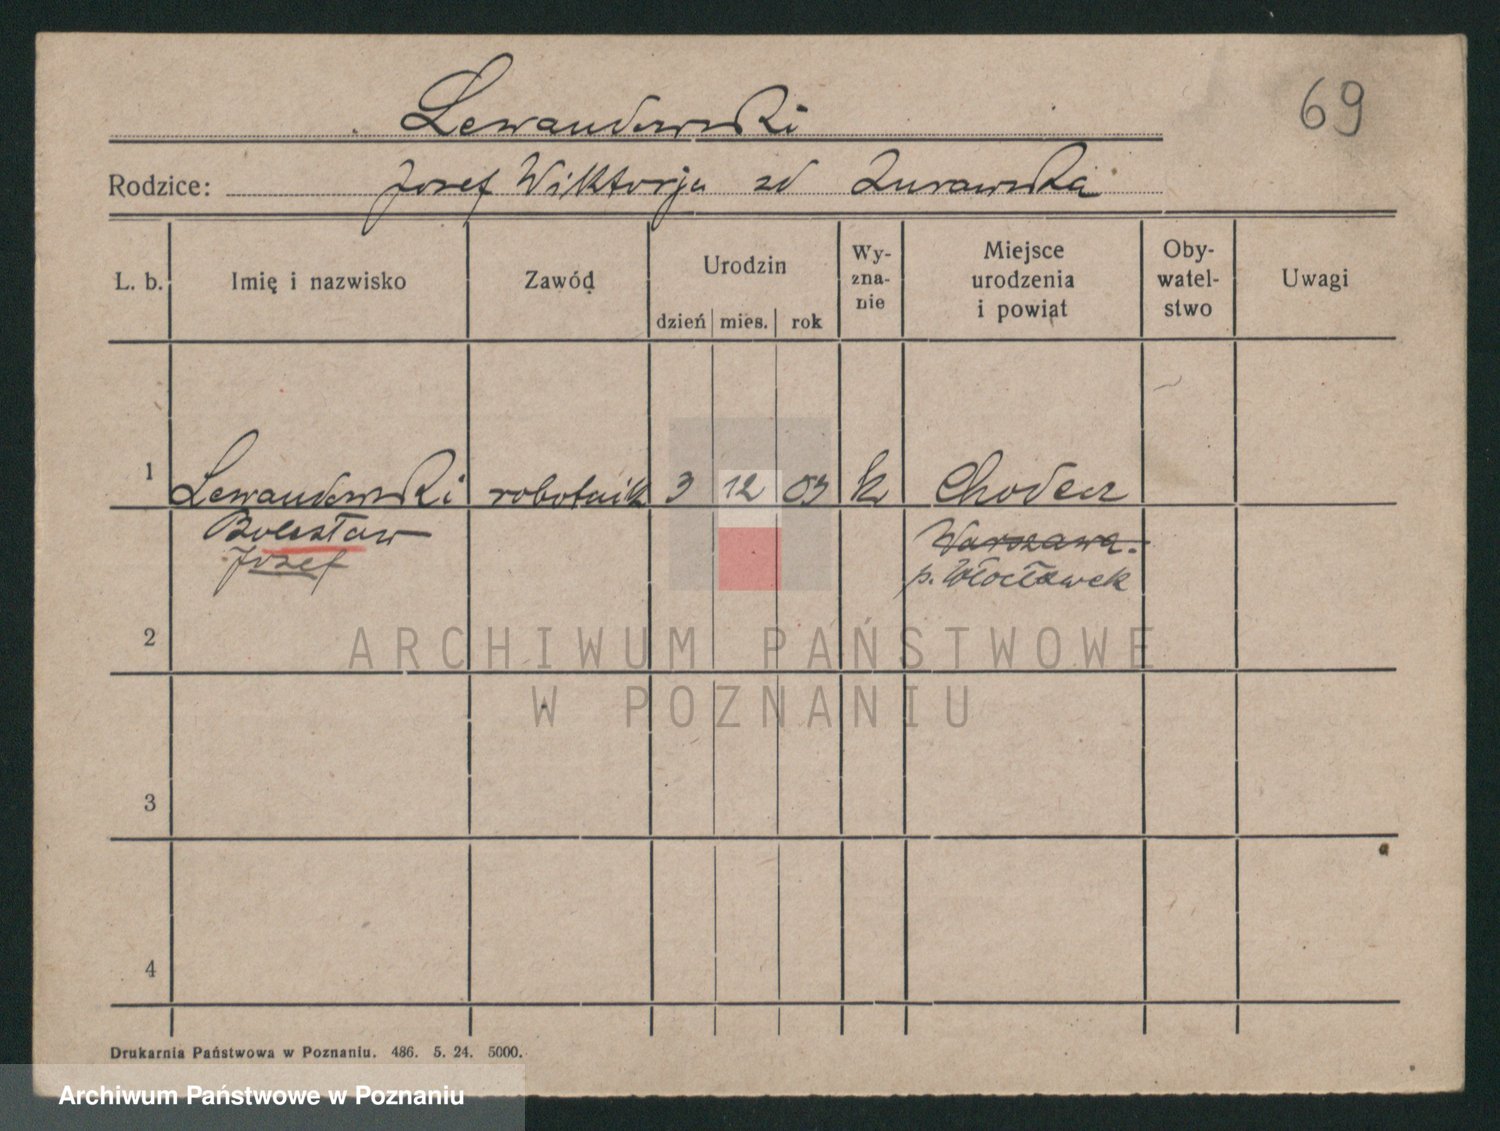 69
Lewandowski
Rodzice: Jozef Wiktorja zd Żurawska
L. b. Imię i nazwisko Zawód Urodzin Wy-zna-nie Miejsce urodzenia i powiat Oby-watel-stwo Uwagi
dzień mies. rok
1 Lewandowski robotnik 3 12 03 k Chodecz
Bolesław Warszawa.
Jozef p. Włocławek
2
3
4
ARCHIWUM PAŃSTWOWE
W POZNANIU
Drukarnia Państwowa w Poznaniu. 486. 5. 24. 5000.
Archiwum Państwowe w Poznaniu